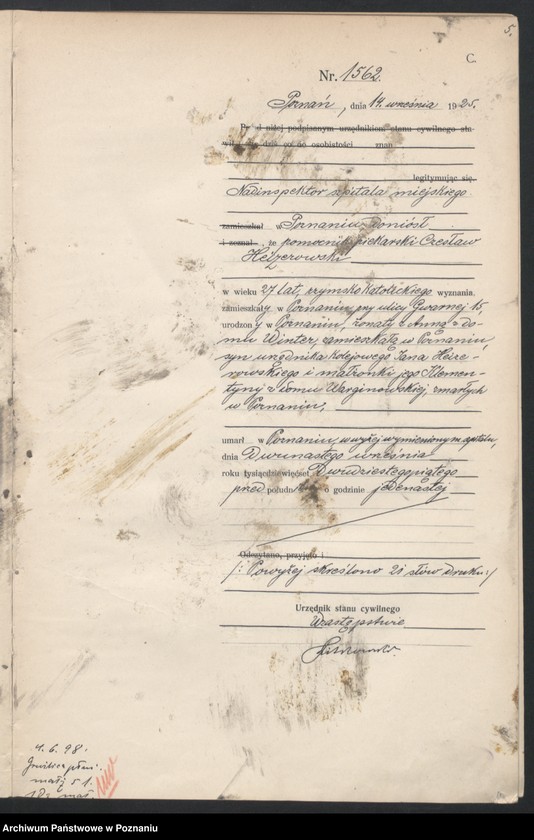 5.
C.
Nr. 1562.
Poznań, dnia 14. września 1925.
Przed niżej podpisanym urzędnikiem stanu cywilnego sta
wił się dziś co do osobistości znan
legitymując się
Nadinspektor szpitala miejskiego
zamieszkał w Poznaniu doniósł
i zeznał, że pomocnik piekarski Czesław
Heizerowski
w wieku 27 lat, rzymsko katolickiego wyznania
zamieszkały w Poznaniu, przy ulicy Gwarnej 15,
urodzony w Poznaniu, żonaty z Anną z do-
mu Winter, zamieszkałą w Poznaniu,
syn urzędnika kolejowego Jana Heize-
rowskiego i małżonki jego Klemen-
tyny z domu Warginowskiej, zmarłych
w Poznaniu,
umarł w Poznaniu, w wyżej wymienionym szpitalu,
dnia Dwunastego września
roku tysiącdziewięćset Dwudziestegopiątego
przed południem o godzinie jedenastej
Odczytano, przyjęto i
/: Powyżej skreślono 21 słów druku :/
Urzędnik stanu cywilnego
W zastępstwie
4. 6. 98.
Archiwum Państwowe w Poznaniu